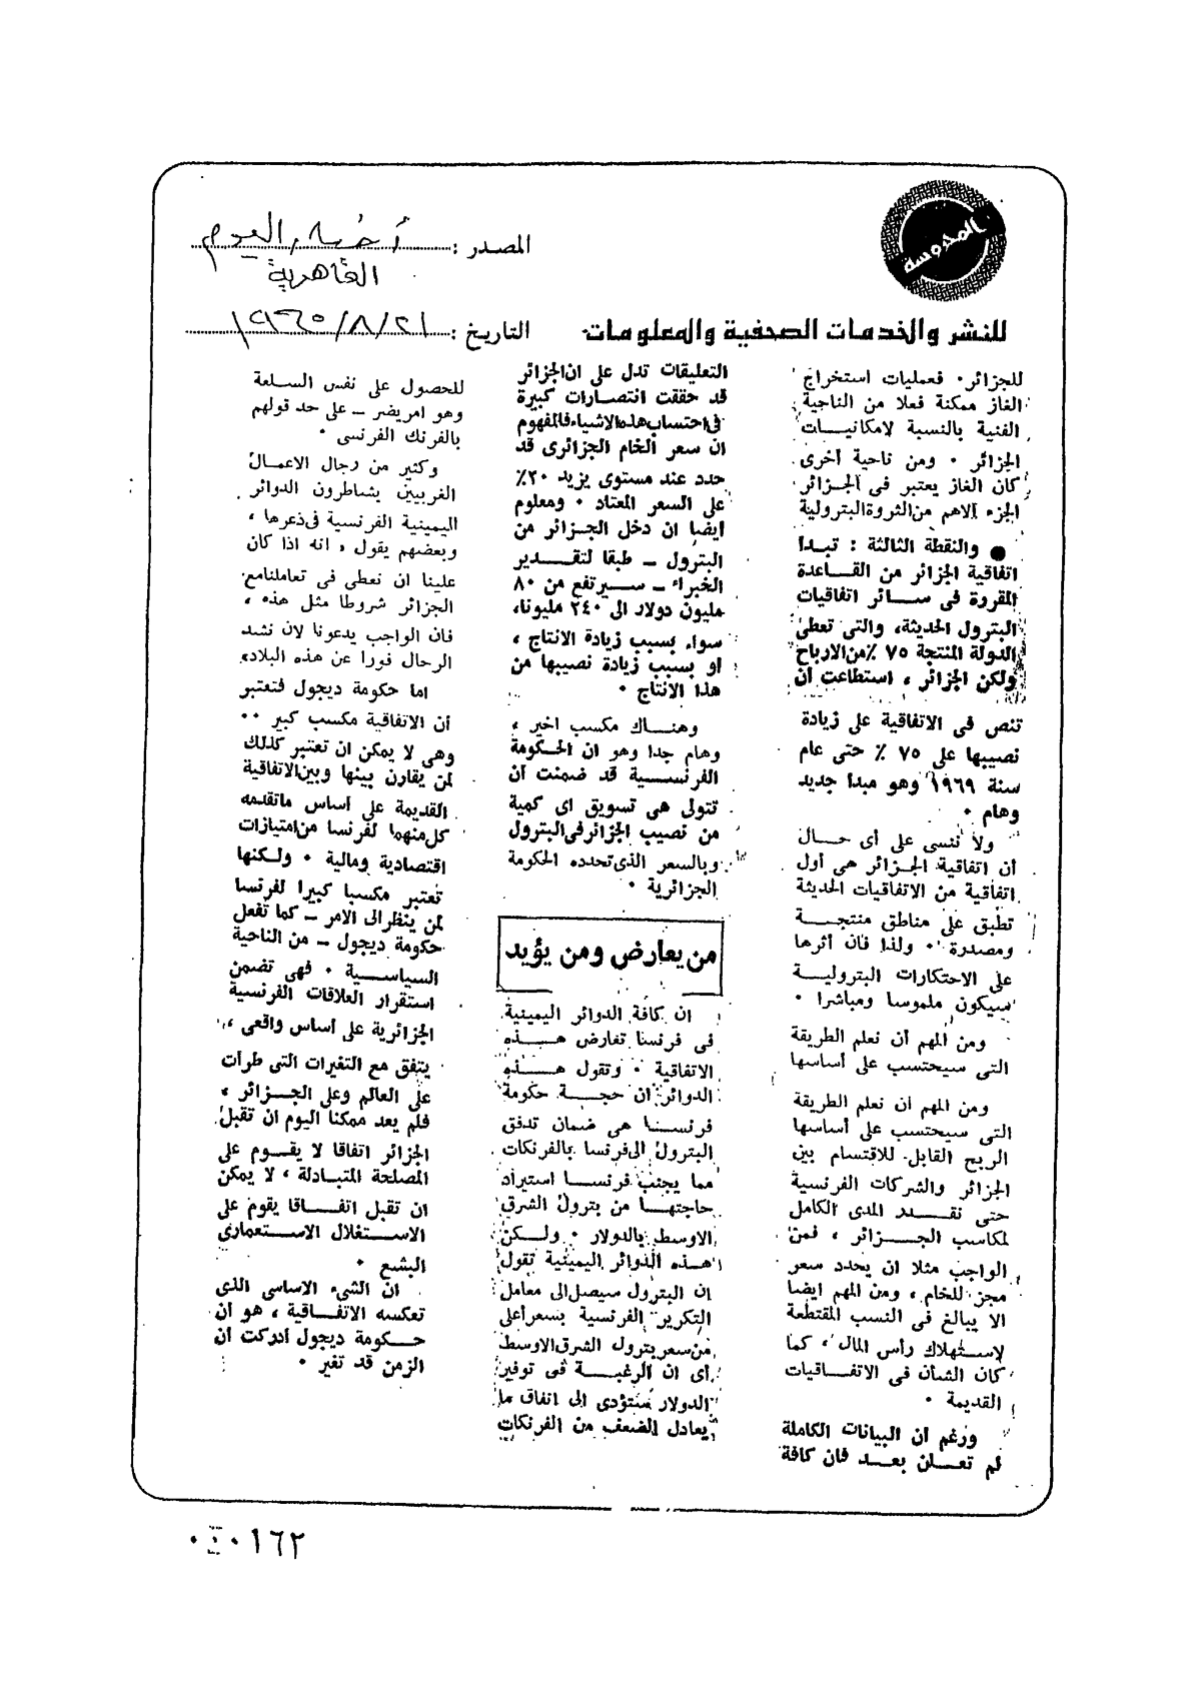 المحروسة
المصدر : أخبار اليوم
القاهرية
للنشر والخدمات الصحفية والمعلومات
التاريخ : ٢١/٨/١٩٦٥
للجزائر • فعمليات استخراج
الغاز ممكنة فعلا من الناحية
الفنية بالنسبة لامكانيـــات
الجزائر • ومن ناحية أخرى
كان الغاز يعتبر فى الجزائر
الجزء الاهم من الثروة البترولية
● والنقطة الثالثة : تبـدا
اتفاقية الجزائر من القـاعدة
المقررة فى ســائر اتفاقيات
البترول الحديثة، والتى تعطى
الدولة المنتجة ٧٥ ٪ من الارباح
ولكن الجزائر ، استطاعت أن
تنص فى الاتفاقية على زيادة
نصيبها على ٧٥ ٪ حتى عام
سنة ١٩٦٩ وهو مبدأ جديد
وهام •
ولا ننسى على أى حـــال
أن اتفاقية الجـزائر هى أول
اتفاقية من الاتفاقيات الحديثة
تطبق على مناطق منتجـــة
ومصدرة • ولذا فان أثرها
على الاحتكارات البتروليـــة
سيكون ملموسا ومباشرا •
ومن المهم أن نعلم الطريقة
التى سيحتسب على أساسها
ومن المهم ان نعلم الطريقة
التى سيحتسب على أساسها
الربح القابل للاقتسام بين
الجزائر والشركات الفرنسية
حتى نقـــدر المدى الكامل
لمكاسب الجـــزائر ، فمن
الواجب مثلا ان يحدد سعر
مجز للخام ، ومن المهم ايضا
الا يبالغ فى النسب المقتطعة
لاستهلاك رأس المال ، كما
كان الشأن فى الاتفـــاقيات
القديمة •
ورغم ان البيانات الكاملة
لم تعـــلن بعـــد فان كافة
التعليقات تدل على ان الجزائر
قد حققت انتصارات كبيرة
فى احتساب هذه الاشياء فالمفهوم
ان سعر الخام الجزائرى قد
حدد عند مستوى يزيد ٢٠٪
على السعر المعتاد • ومعلوم
ايضا ان دخل الجـزائر من
البترول ــ طبقا لتقـــدير
الخبراء ــ سـيرتفع من ٨٠
مليون دولار الى ٢٤٠ مليونا،
سواء بسبب زيادة الانتاج ،
او بسبب زيادة نصيبها من
هذا الانتاج •
وهنـــاك مكسب اخير ،
وهام جدا وهو ان الحكومة
الفرنســية قد ضمنت أن
تتولى هى تسويق اى كمية
من نصيب الجزائر فى البترول
وبالسعر الذى تحدده الحكومة
الجزائرية •
من يعارض ومن يؤيد
ان كافة الدوائر اليمينية
فى فرنسا تعارض هـــذه
الاتفاقية • وتقول هـــذه
الدوائر ان حجـــة حكومة
فرنســـنا هى ضمان تدفق
البترول الى فرنسا بالفرنكات
مما يجنب فرنســـا استيراد
حاجتهـــا من بترول الشرق
الاوسط بالدولار • ولــكن
هـذه الدوائر اليمينية تقول
ان البترول سيصل الى معامل
التكرير الفرنسية بسعر أعلى
من سعر بترول الشرق الاوسط
أى ان الرغبـــة فى توفير
الدولار ستؤدى الى انفاق ما
يعادل الضعف من الفرنكات
للحصول على نفس السـلعة
وهو امر يضر ــ على حد قولهم
بالفرنك الفرنسى •
وكثير من رجال الاعمــال
الغربيين يشاطرون الدوائر
اليمينية الفرنسية فى ذعرها ،
وبعضهم يقول ، انه اذا كان
علينا ان نعطى فى تعاملنا مع
الجزائر شروطا مثل هذه ،
فان الواجب يدعونا لان نشد
الرحال فورا عن هذه البلاد،
اما حكومة ديجول فتعتبر
أن الاتفاقية مكسب كبير ••
وهى لا يمكن ان تعتبر كذلك
لمن يقارن بينها وبين الاتفاقية
القديمة على أساس ما تقدمه
كل منهما لفرنسا من امتيازات
اقتصادية ومالية • ولــكنها
تعتبر مكسبا كبيرا لفرنسا
لمن ينظر الى الامر ــ كما تفعل
حكومة ديجول ــ من الناحية
السياســـية • فهى تضمن
استقرار العلاقات الفرنسية
الجزائرية على أساس واقعى ،
يتفق مع التغيرات التى طرأت
على العالم وعلى الجـــزائر ،
فلم يعد ممكنا اليوم ان تقبل
الجزائر اتفاقا لا يقـــوم على
المصلحة المتبـادلة ، لا يمكن
ان تقبل اتفـــاقا يقوم على
الاســـتغلال الاستعمارى
البشع •
ان الشىء الاساسى الذى
تعكسه الاتفـــاقية ، هو أن
حـــكومة ديجول ادركت ان
الزمن قد تغير •